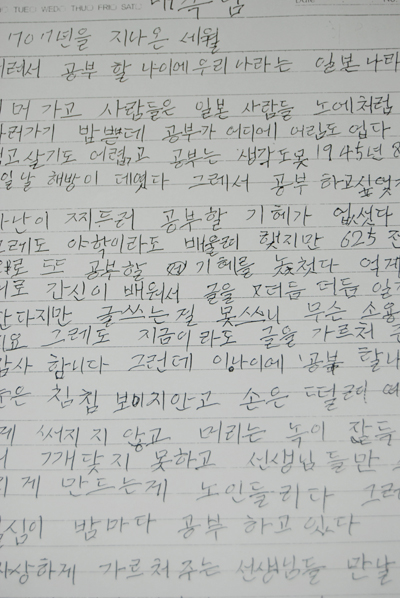 TUE□ WED□ THU□ FRI□ SAT□
70 7년을 지나온 세월
려서 공부 할 나이에 우리 나라는 일본 나라
머 가고 사람들은 일본 사람들 노에처럼
러가기 밥쁜데 공부가 어디에 어림도 업다
고 살기도 어렵고 공부는 생각도 못 1945년 8
일날 해방이 데엿다 그레서 공부 하고 싶엇
난이 찌들러 공부할 기헤가 업섯다
그레도 야학이라도 배울려 햇지만 625 전
로 또 공부할 기헤를 놓첫다 억게
로 간신이 배워서 글을 더듬 더듬
다지만 글쓰는 길 못쓰니 무슨 소용
요 그레도 지금이라도 글을 가르처
감사 함니다 그런데 이 나이에 공부 할
은 침침 보이지 안고 손은 떨려
써지지 않고 머리는 녹이 잔득
깨닷지 못하고 선생님들만
게 만드는게 노인들리다 그레
심이 밤마다 공부 하고 있다
자상하게 가르처 주는 선생님들 만날